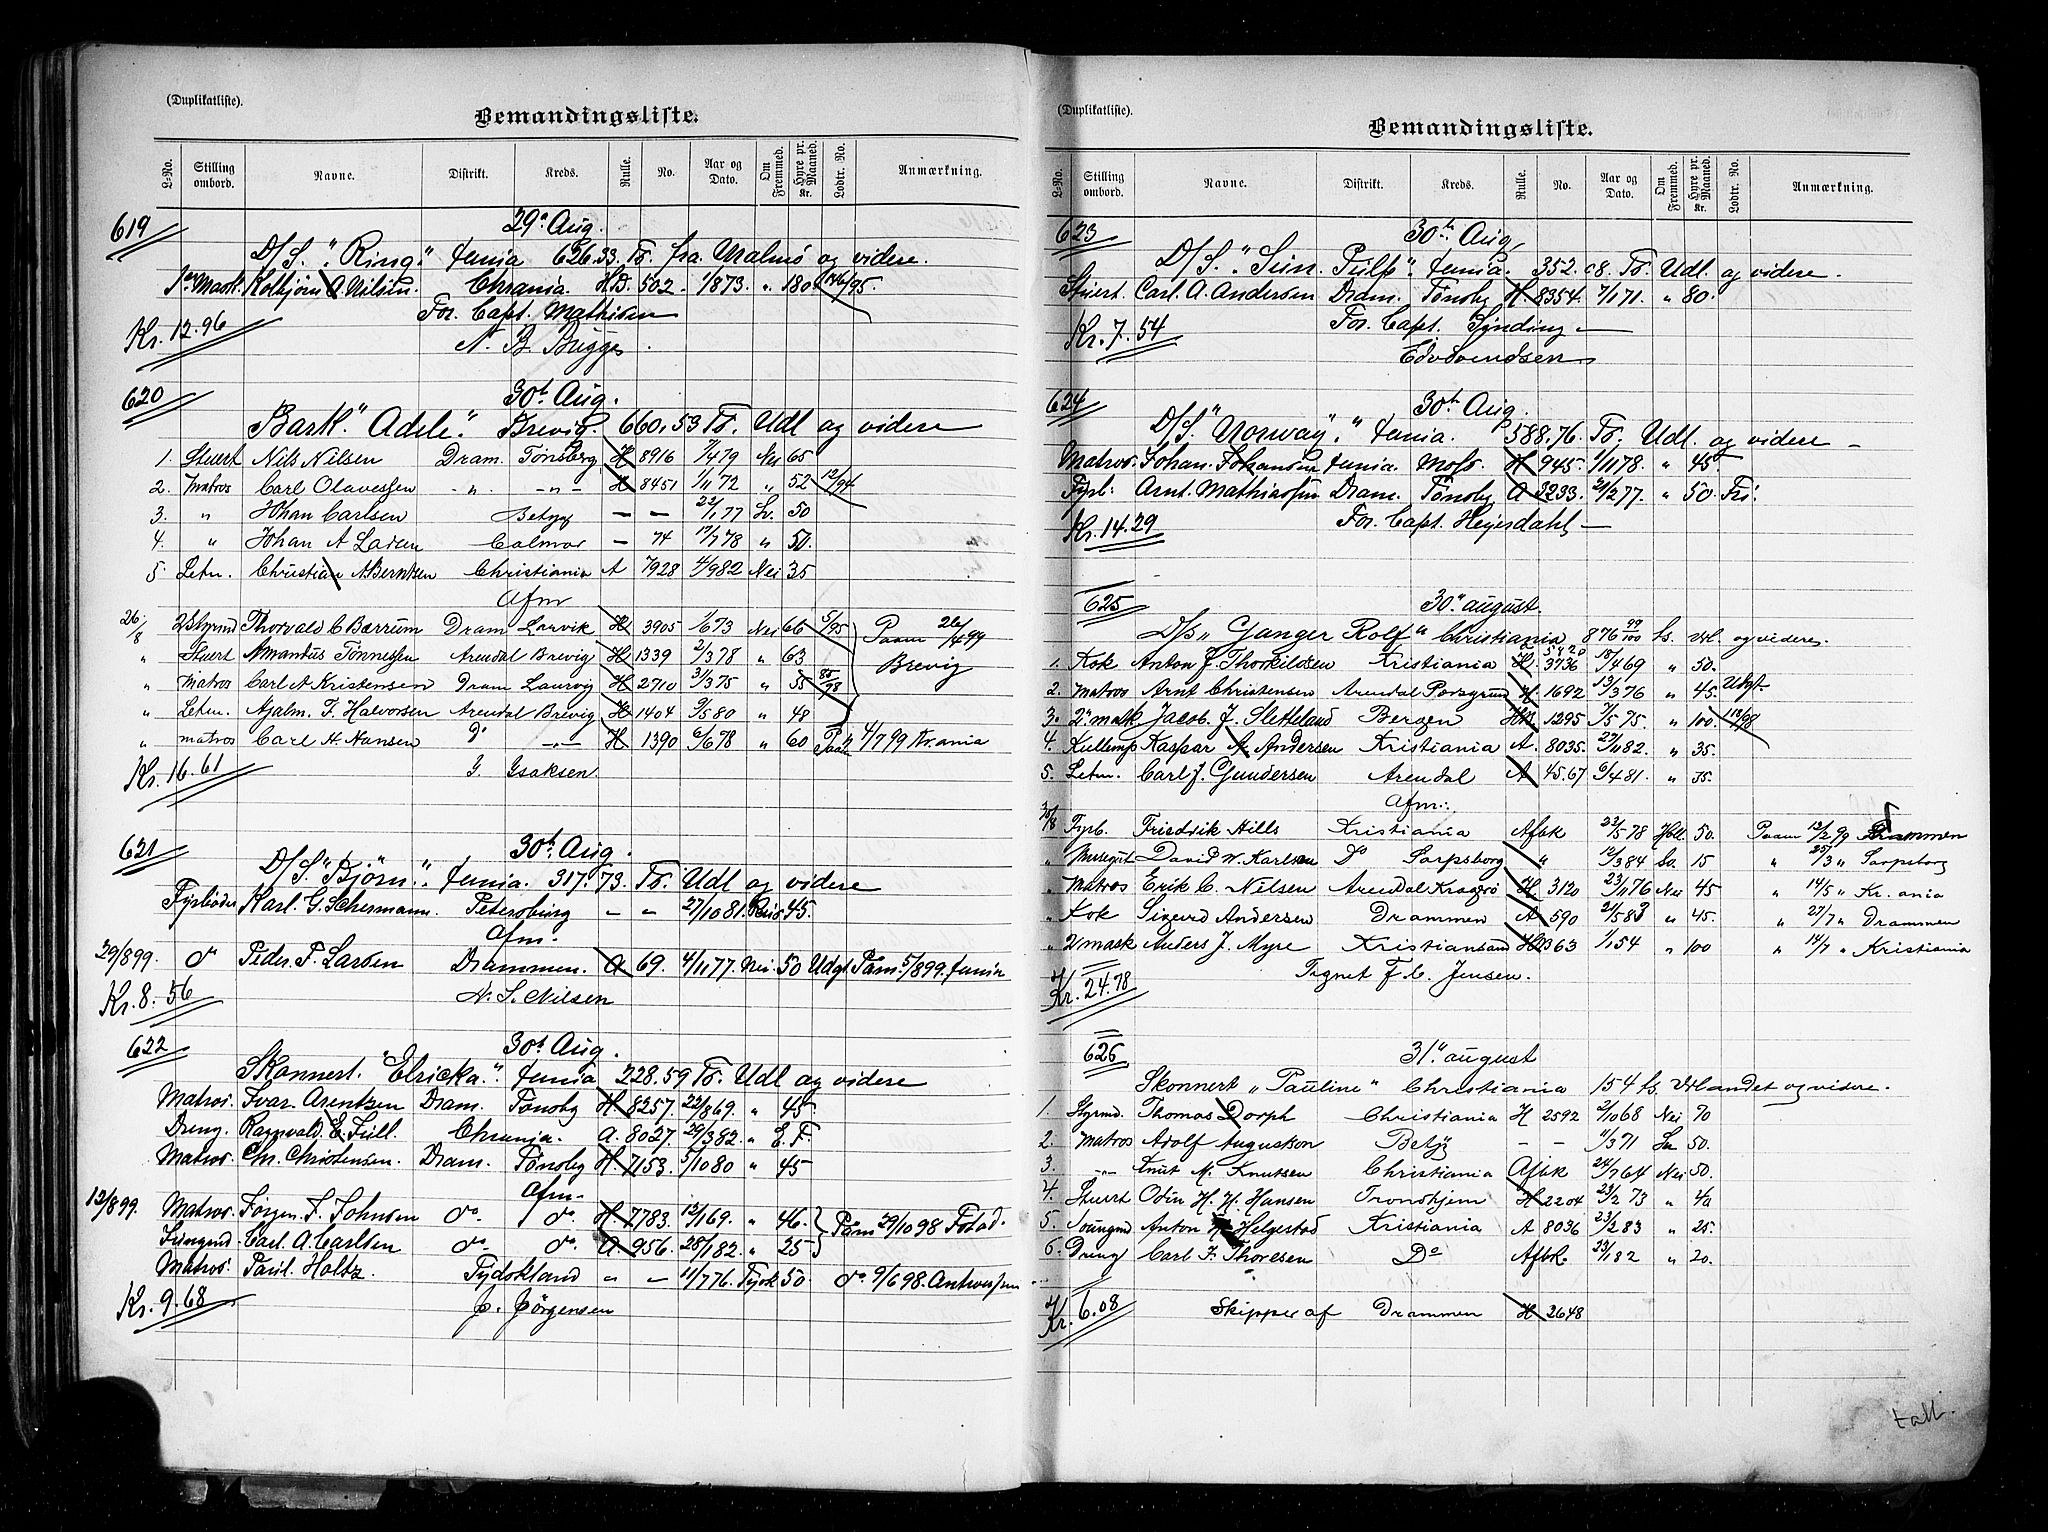 (Duplikatliste).
Bemandingsliste.
L-No. Stilling ombord. Navne. Distrikt. Kreds. Rulle. No. Aar og Dato. Om Fremmed. Hyre pr. Maaned. Kr. Lodtr. No. Anmærkning.
619 29de Aug.
D/S. "Ring." 626.33. To. fra Malmö og videre.
1ste Mask. Kolbjörn A Nilsen. Chrania. H.B. 502. 1/8 73. " 180
For. Capt. Mathisen
Kr. 12.96
N. B. Brigges
620 30te Aug.
Bark. "Adele". Brevig. 660.53 To. Udl og videre
1. Stuert Nils Nilsen Dram. Tönsberg H 8916 7/4 79 Nei 65
2. Matros Carl Olavessen - " - - " - H 8451 1/11 72 " 52 12/94
3. " Johan Carlsen Betyg — — 23/1 77 Sv. 50
4. " Johan A Larsen Calmar — 74 17/7 78 " 50.
5 Letm. Christian A Berntsen Christiania A 7928 4/9 82 Nei 35
Afm
26/8 2 Styrmd Thorvald C Bærrum Dram Larvik H 3905 1/6 73 Nei 66 5/95 Paam 26/4 99
" Stuert Amandus Tönnessen Arendal Brevig H 1339 2/3 78 " 63 Brevig
" Matros Carl A Kristensen Dram Laurvig H 2710 31/3 75 " 55 85/98
" Letm. Hjalm. F. Halvorsen Arendal Brevig H 1404 9/5 80 " 48
" matros Carl H. Hansen Do - " - H 1390 6/6 78 " 60 4/7 99 Kr.ania
Kr. 16.61 J. Isaksen.
621 30te Aug.
D/S. "Björn". 317.73. To. Udl og videre
Fyrböder Karl. G. Schermann. Petersburg - - 27/10 81. Rus. 45.
Afm.
29/8 99. do Peder. P. Larsen Drammen. A 69. 4/11 77. Nei 50 Udgt. Paam. 5/8 99.
Kr. 8.56 N. S. Nilsen
622 30te Aug.
Skonnert. "Elricka." 228.59 To. Udl og videre
Matros. Ivar. Arentzen Dram. Tönsbg H 8257. 22/8 69. " 45.
Dreng. Ragnvald. E. Full. Chrania. A. 8027. 29/3 82. " E. F.
Matros. Chr. Christensen. Dram. Tönsbg H 7153. 5/10 80 " 45
Afm.
12/8 99. Matros. Jörgen. F. Johnsen do. do. H. 7783. 12/1 69. " 46. Paam 29/10 98
Jungmd. Carl. A. Carlsen do. do. A 956. 28/1 82. " 25
Matros. Paul. Holtz. Tydskland " - 11/7 76. Tysk 50. do. 9/6 98. Antwerpen
Kr. 9.68 J. Jörgensen
(Duplikatliste).
Bemandingsliste.
L-No. Stilling ombord. Navne. Distrikt. Kreds. Rulle. No. Aar og Dato. Om Fremmed. Hyre pr. Maaned. Kr. Lodtr. No. Anmærkning.
623 30te Aug
D/S. 352.08. To. Udl og videre.
Stuert. Carl. A. Andersen Dram. Tönsbg H 8354. 7/1 71. " 80.
For. Capt. Synding
Kr. 7.54
Edv Svendsen
624 30te Aug.
D/S. "Norway". 588.76. To. Udl. og videre
Matros. Johan. Johansen Moss. H 945. 1/11 78. " 45.
Fyrb: Arnt. Mathiassen Dram. Tönsbg A 3233. 21/2 77. " 50. Fri.
Kr. 14.29 For. Capt. Heyerdahl
625 30te august.
D/s "Ganger Rolf" Christiania 876 99/100 ts. Url. og videre.
1. Kok Anton J. Thorkildsen Kristiania H. 3736 18/4 69 " 50.
2. Matros Arnt Christensen Arendal Porsgrund H 1692 13/3 76 " 45. Udgt.
3. 2n mask Jacob. J. Sletteland Bergen HB 1295 7/5 75 " 100. 112/98
4. Kullemp Kaspar A. Andersen Kristiania A. 8035. 27/11 82. " 35.
5. Letm. Carl J. Gundersen Arendal A 4567 6/4 81 " 35.
Afm.
30/8 Fyrb. Friedrik Hills Kristiania Afbk 22/5 78 Holl. 50. Paam 12/2 99 Drammen
" Messegut David W. Karlsen Do Sarpsborg " 12/3 84 Sv. 15 " 25/3 " Sarpsborg
" Matros Erik C. Nilsen Arendal Kragerö H 3120 23/11 76 Nei 45 " 14/5 " Kr.ania
" Kok Sigurd Andersen Drammen A 590 21/5 83 " 45. " 27/7 " Drammen
" 2 mask Anders J. Myre Kristiansand HB 363 1/1 54 " 100 " 14/7 " Kristiania
Kr. 24.78 Tegnet F. C. Jensen.
626 31te august
Skonnert "Pauline" Christiania 154 ts. Urlandet og videre.
1. Styrmd. Thomas Dorph Christiania H 2592 2/10 68 Nei 70
2. Matros Adolf Augustson Betyg - - 11/3 71 Sv. 50.
3. -"- Knut M. Knutsen Christiania Afbk 24/7 64 Nei 50.
4. Stuert Odin H. H. Hansen Trondhjem H 2204 23/2 73 " 40
5. Joungmd Anton Helgestad Kristiania A 8036 23/2 83 " 25.
6. Dreng Carl F. Thoresen Do Afbk. 23/1 82 " 20.
Kr. 6.08 Skipper af Drammen H 2648